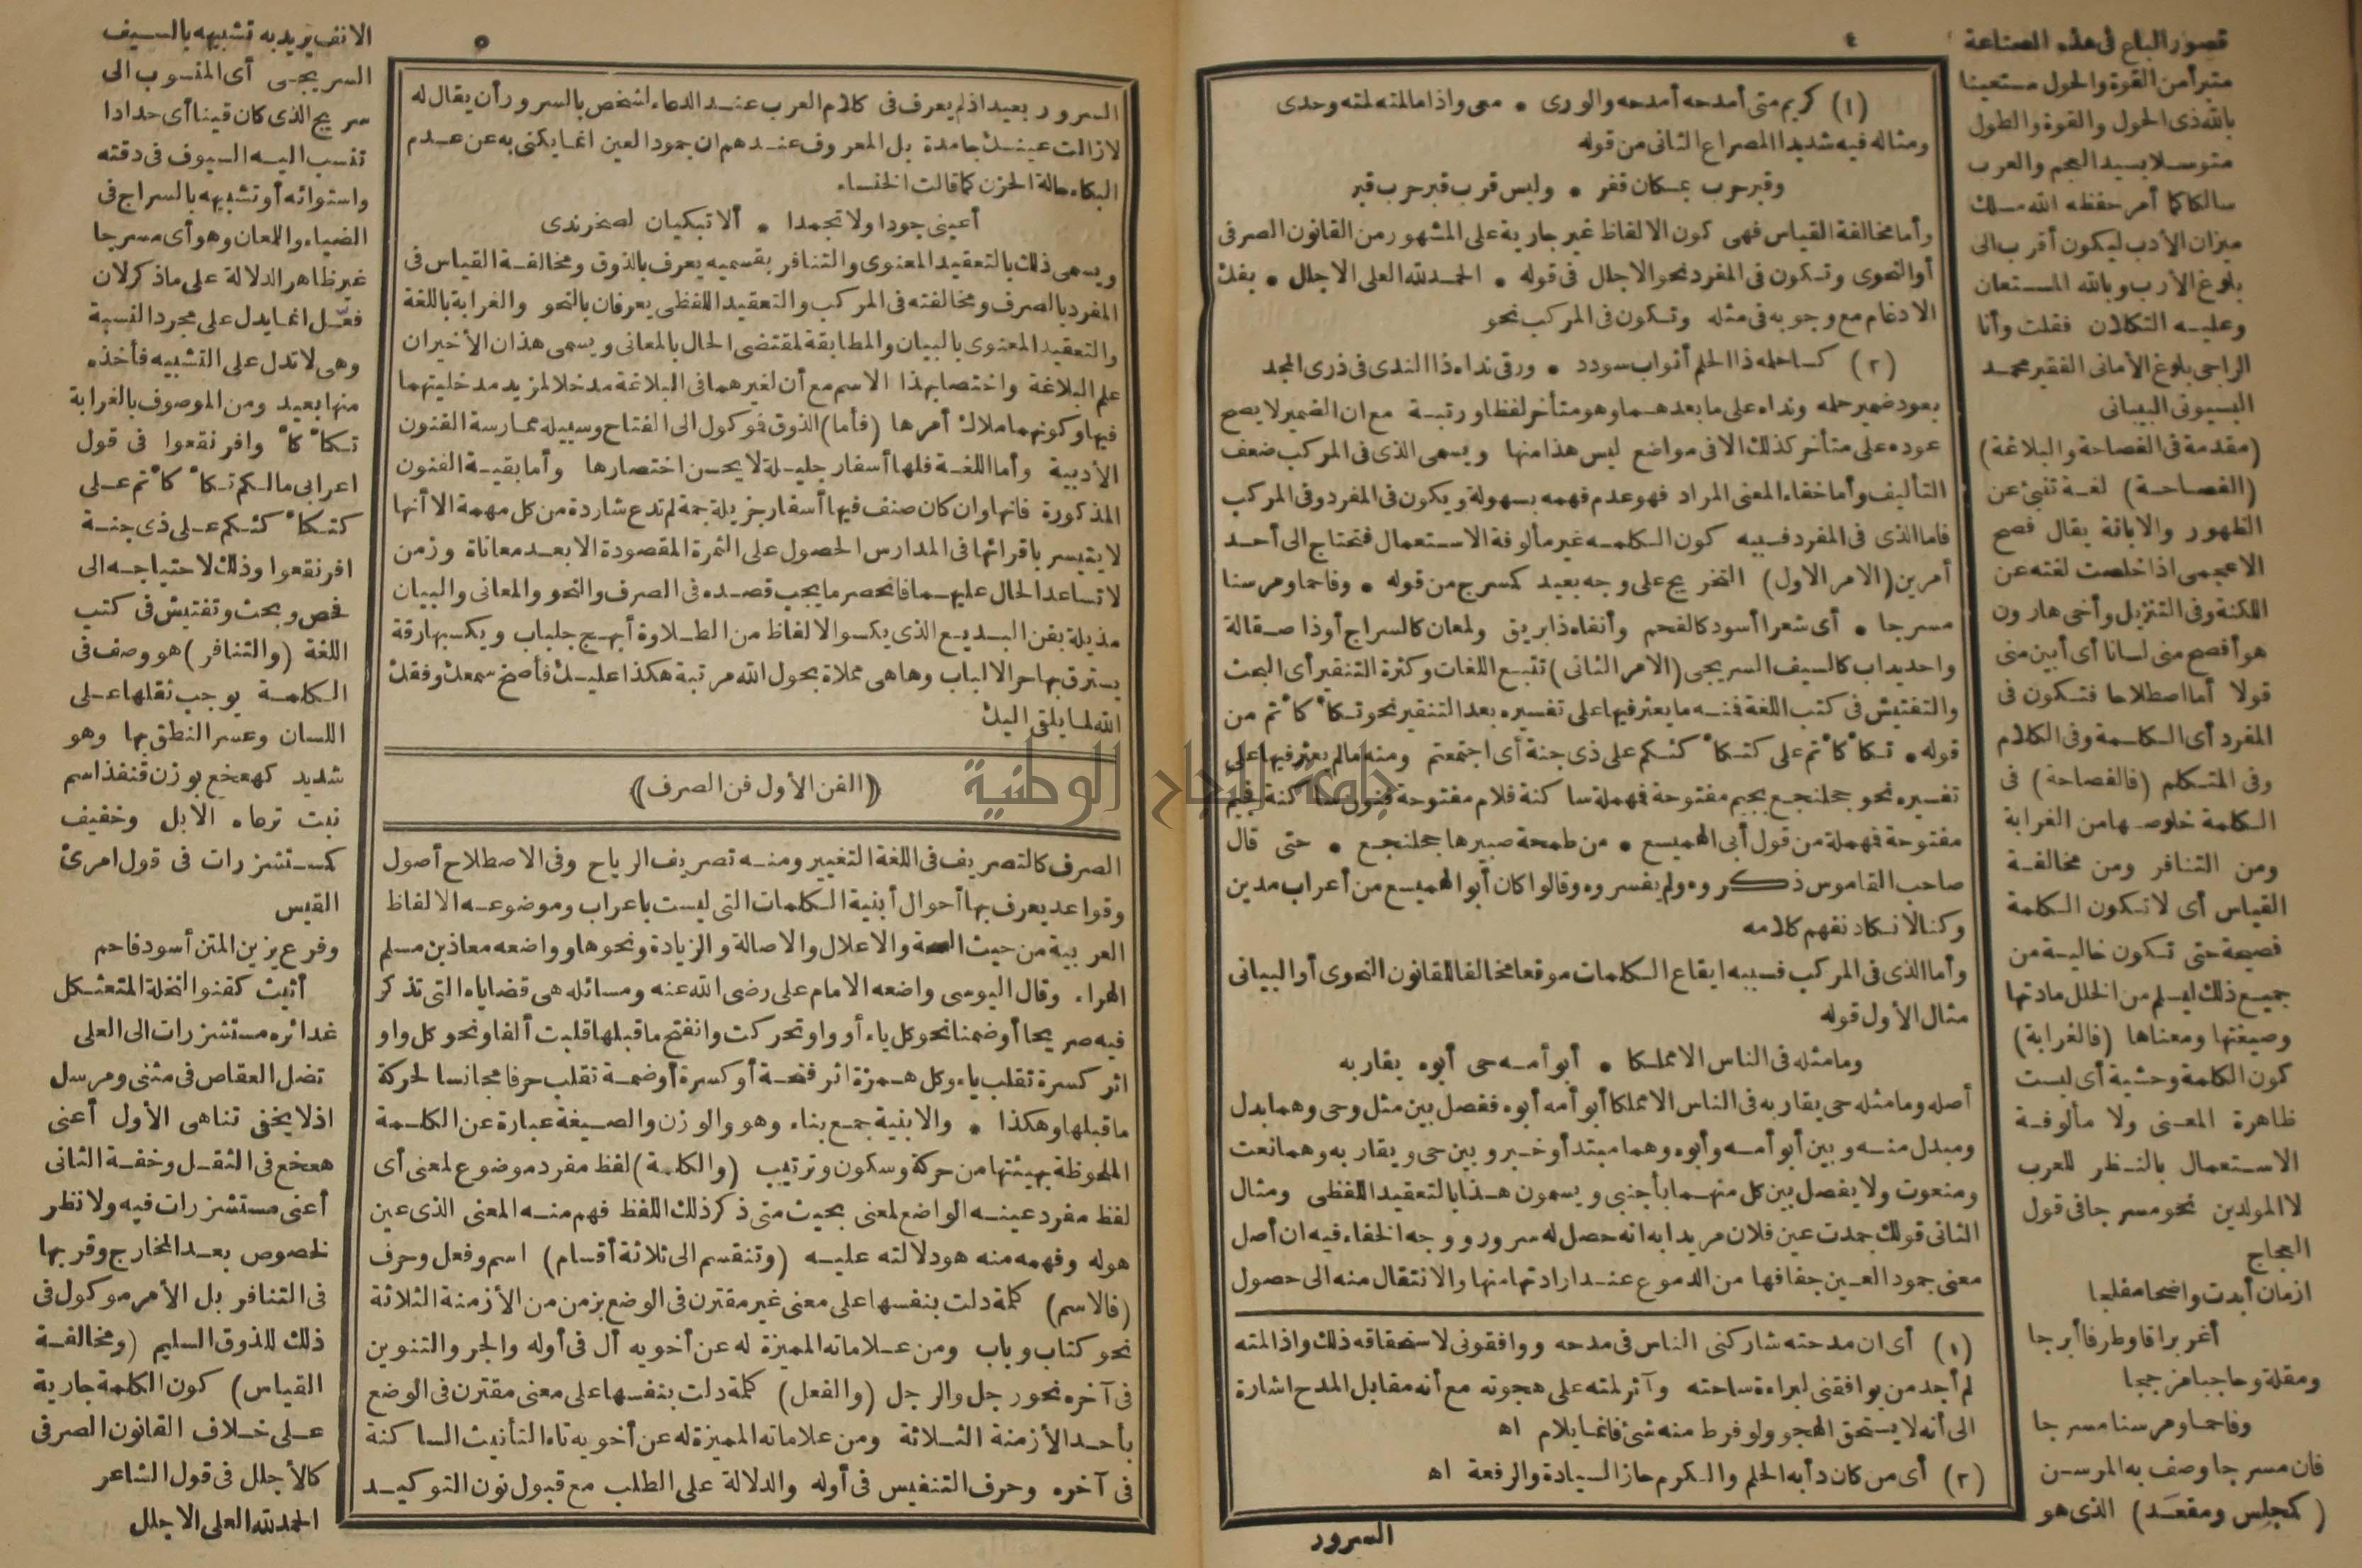 ٤
(١) كريم متى أمدحه أمدحه والورى • معى واذا مالمته لمته وحدى
ومثاله فيه شديدا المصراع الثانى من قوله
وقبر حرب بمكان قفر • وليس قرب قبر حرب قبر
وأما مخالفة القياس فهى كون الالفاظ غير جارية على المشهور من القانون الصرفى
أو النحوى وتكون فى المفرد نحو الاجلل فى قوله • الحمد لله العلى الاجلل • بفك
الادغام مع وجوبه فى مثله وتكون فى المركب نحو
(٢) كساحلمه ذا الحلم أثواب سودد • ورقى نداه ذا الندى فى ذرى المجد
بعود ضمير حلمه ونداه على ما بعدهما وهو متأخر لفظا ورتبة مع ان الضمير لا يصح
عوده على متأخر كذلك الا فى مواضع ليس هذا منها ويسمى الذى فى المركب ضعف
التأليف وأما خفاء المعنى المراد فهو عدم فهمه بسهولة ويكون فى المفرد وفى المركب
فاما الذى فى المفرد فسببه كون الكلمه غير مألوفة الاستعمال فتحتاج الى أحد
أمرين (الامر الاول) التخريج على وجه بعيد كمسرج من قوله • وفاحما ومرسنا
مسرجا • أى شعرا أسود كالفحم وأنفاه ذا بريق ولمعان كالسراج أو ذا صقالة
واحديداب كالسيف السريجى (الامر الثانى) تتبع اللغات وكثرة التنقير أى البحث
والتفتيش فى كتب اللغة فنه ما يعثر فيها على تفسيره بعد التنقير نحو تكأ كأتم من
قوله • تكأ كأتم على كتكأ كئكم على ذى جنة أى اجتمعتم ومنه مالم يعثر فيها على
تفسيره نحو جحلنجع بجيم مفتوحة فهملة ساكنة فلام مفتوحة فنون ساكنة فجيم
مفتوحة فهملة من قول أبى الهميسع • من طمحة صبيرها جحلنجع • حتى قال
صاحب القاموس ذكروه ولم يفسروه وقالوا كان أبو الهميسع من أعراب مدين
وكنا لا نكاد نفهم كلامه
وأما الذى فى المركب فسببه ايقاع الكلمات موقعا مخالفا للقانون النحوى أو البيانى
مثال الأول قوله
وما مثله فى الناس الا مملكا • أبو أمه حى أبوه يقاربه
أصله وما مثله حى يقاربه فى الناس الا مملكا أبو أمه أبوه ففصل بين مثل وحى وهما بدل
ومبدل منه وبين أبو أمه وأبوه وهما مبتدأ وخبر وبين حى ويقاربه وهما نعت
ومنعوت ولا يفصل بين كل منهما بأجنبى ويسمون هذا بالتعقيد اللفظى ومثال
الثانى قولك جمدت عين فلان مريدا به انه حصل له سرور ووجه الخفاء فيه ان أصل
معنى جمود العين جفافها من الدموع عند ارادتها منها والانتقال منه الى حصول
(١) أى ان مدحته شاركنى الناس فى مدحه ووافقونى لاستحقاقه ذلك واذا لمته
لم أجد من يوافقنى لبراءة ساحته وآثر لمته على هجوته مع أنه مقابل المدح اشارة
الى أنه لا يستحق الهجو ولو فرط منه شئ فانما يلام اه
(٢) أى من كان دأبه الحلم والكرم حاز السيادة والرفعة اه
السرور
قصور الباع فى هذه الصناعة
متبرأ من القوة والحول مستعينا
بالله ذى الحول والقوة والطول
متوسلا بسيد العجم والعرب
سالكا كما أمر حفظه الله مسلك
ميزان الأدب ليكون أقرب الى
بلوغ الأرب وبالله المستعان
وعليه التكلان فقلت وأنا
الراجى بلوغ الأمانى الفقير محمد
البسيونى البيبانى
(مقدمة فى الفصاحة والبلاغة)
(الفصاحة) لغة تنبئ عن
الظهور والابانة يقال فصح
الاعجمى اذا خلصت لغته عن
اللكنة وفى التنزيل وأخى هارون
هو أفصح منى لسانا أى أبين منى
قولا أما اصطلاحا فتكون فى
المفرد أى الكلمة وفى الكلام
وفى المتكلم (فالفصاحة) فى
الكلمة خلوصها من الغرابة
ومن التنافر ومن مخالفة
القياس أى لا تكون الكلمة
فصيحة حتى تكون خالية من
جميع ذلك ليسلم من الخلل مادتها
وصيغتها ومعناها (فالغرابة)
كون الكلمة وحشية أى ليست
ظاهرة المعنى ولا مألوفة
الاستعمال بالنظر للعرب
لا المولدين نحو مسرجا فى قول
العجاج
ازمان أبدت واضحا مفلجا
أغر براقا وطرفا أبرجا
ومقلة وحاجبا مزججا
وفاحما ومرسنا مسرجا
فان مسرجا وصف به المرسن
(كمجلس ومقعد) الذى هو
٥
السرور بعيد اذ لم يعرف فى كلام العرب عند الدعاء لشخص بالسرور أن يقال له
لا زالت عينك جامدة بل المعروف عندهم ان جمود العين انما يكنى به عن عدم
البكاء حالة الحزن كما قالت الخنساء
أعينى جودا ولا تجمدا • ألا تبكيان لصخر ندى
ويسمى ذلك بالتعقيد المعنوى والتنافر بقسميه يعرف بالذوق ومخالفة القياس فى
المفرد بالصرف ومخالفته فى المركب والتعقيد اللفظى يعرفان بالنحو والغرابة باللغة
والتعقيد المعنوى بالبيان والمطابقة لمقتضى الحال بالمعانى ويسمى هذان الأخيران
علم البلاغة واختصا بهذا الاسم مع أن لغيرهما فى البلاغة مدخلا لمزيد مدخليتهما
فيها وكونهما ملاك أمرها (فأما) الذوق فوكول الى الفتاح وسبيله ممارسة الفنون
الأدبية وأما اللغة فلها أسفار جليلة لا يحسن اختصارها وأما بقية الفنون
المذكورة فانها وان كان صنف فيها أسفار جزيلة جمة لم تدع شاردة من كل مهمة الا أنها
لا يتيسر باقرائها فى المدارس الحصول على الثمرة المقصودة الا بعد معاناة وزمن
لا تساعد الحال عليهما فانحصر ما يجب قصده فى الصرف والنحو والمعانى والبيان
مذيلة بفن البديع الذى يكسو الالفاظ من الطلاوة أبهج جلباب ويكسبها رقة
يسترق بها حر الالباب وها هى مملاة بحول الله مرتبة هكذا عليك فأصخ سمعك وفقك
الله لما يلقى اليك
﴿الفن الأول فن الصرف﴾
الصرف كالتصريف فى اللغة التغيير ومنه تصريف الرياح وفى الاصطلاح أصول
وقواعد يعرف بها أحوال أبنية الكلمات التى ليست باعراب وموضوعه الالفاظ
العربية من حيث الصحة والاعلال والاصالة والزيادة ونحوها وواضعه معاذ بن مسلم
الهراء وقال اليوسى واضعه الامام على رضى الله عنه ومسائله هى قضاياه التى تذكر
فيه صريحا أو ضمنا نحو كل ياء أو واو تحركت وانفتح ما قبلها قلبت ألفا ونحو كل واو
اثر كسرة تقلب ياء وكل همزة اثر فتحة أو كسرة أو ضمة تقلب حرفا مجانسا لحركة
ما قبلها وهكذا • والابنية جمع بناء وهو والوزن والصيغة عبارة عن الكلمة
الملحوظة بهيئتها من حركة وسكون وترتيب (والكلمة) لفظ مفرد موضوع لمعنى أى
لفظ مفرد عينه الواضع لمعنى بحيث متى ذكر ذلك اللفظ فهم منه المعنى الذى عين
هوله وفهمه منه هو دلالته عليه (وتنقسم الى ثلاثة أقسام) اسم وفعل وحرف
(فالاسم) كلمة دلت بنفسها على معنى غير مقترن فى الوضع بزمن من الأزمنة الثلاثة
نحو كتاب وباب ومن علاماته المميزة له عن أخويه أل فى أوله والجر والتنوين
فى آخره نحو رجل والرجل (والفعل) كلمة دلت بنفسها على معنى مقترن فى الوضع
بأحد الأزمنة الثلاثة ومن علاماته المميزة له عن أخويه تاء التأنيث الساكنة
فى آخره وحرف التنفيس فى أوله والدلالة على الطلب مع قبول نون التوكيد
الانف يريد به تشبيهه بالسيف
السريجى أى المنسوب الى
سريج الذى كان قينا أى حدادا
تنسب اليه السيوف فى دقته
واستوائه أو تشبيهه بالسراج فى
الضياء واللمعان وهو أى مسرجا
غير ظاهر الدلالة على ما ذكر لان
فعّل انما يدل على مجرد النسبة
وهى لا تدل على التشبيه فأخذه
منها بعيد ومن الموصوف بالغرابة
تكأ كأ وافرنقعوا فى قول
اعرابى مالكم تكأ كأتم على
كتكأ كئكم على ذى جنة
افرنقعوا وذلك لاحتياجه الى
فحص وبحث وتفتيش فى كتب
اللغة (والتنافر) هو وصف فى
الكلمة يوجب نقلها على
اللسان وعسر النطق بها وهو
شديد كهعخع بوزن قنفذ اسم
نبت ترعاه الابل وخفيف
كمستشزرات فى قول امرئ
القيس
وفرع يزين المتن أسود فاحم
أثيث كقنو النخلة المتعثكل
غدائره مستشزرات الى العلى
تضل العقاص فى مثنى ومرسل
اذ لا يخفى تناهى الأول أعنى
هعخع فى الثقل وخفة الثانى
أعنى مستشزرات فيه ولا نظر
لخصوص بعد المخارج وقربها
فى التنافر بل الأمر موكول فى
ذلك للذوق السليم (ومخالفة
القياس) كون الكلمة جارية
على خلاف القانون الصرفى
كالأجلل فى قول الشاعر
الحمد لله العلى الاجلل
جامعة النجاح الوطنية